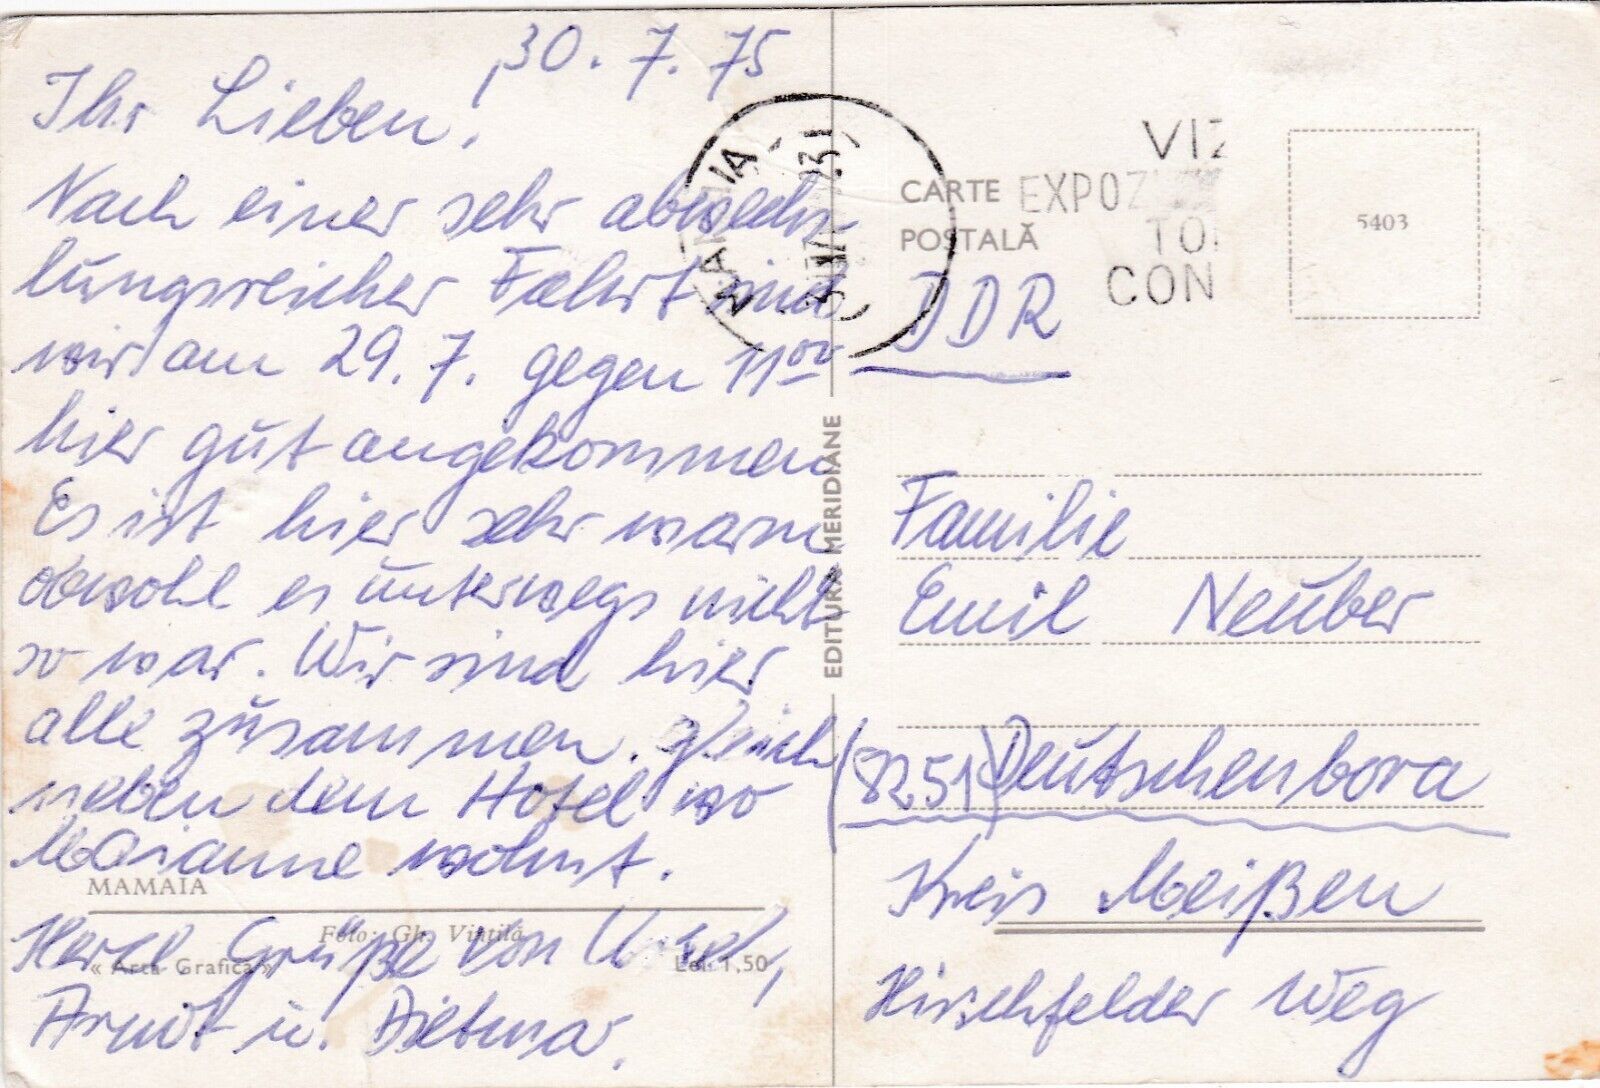 30.7.75
Ihr Lieben!
Nach einer sehr abwechs-
lungsreicher Fahrt sind
wir am 29.7. gegen 11oo
hier gut angekommen
Es ist hier sehr warm
obwohl es unterwegs nicht
so war. Wir sind hier
alle zusammen. gleich
neben dem Hotel wo
Marianne wohnt.
MAMAIA
Foto: Gh. Vintilă
« Arta Grafica »
Lei 1,50
Herzl Grüße von
Arndt u. Dietmar.
EDITURA MERIDIANE
MAMAIA
CARTE
POSTALĂ
VIZ
EXPOZ
TO
CON
5403
DDR
Familie
Emil Neuber
(8251) Deutschenbora
Kreis Meißen
Hirschfelder Weg